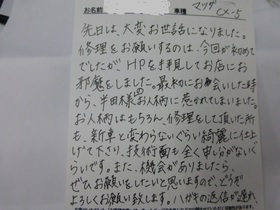 お名前 車種 マツダ CX-5
先日は、大変お世話になりました。
修理をお願いするのは、今回が初めて
でしたが、HPを拝見してお店にお
邪魔をしました。最初にお会いした時
から、半田様のお人柄に惹かれてしまいました。
お人柄はもちろん、修理をして頂いた所
も、新車と変わらないぐらい綺麗に仕上
げて下さり、技術面も全く申し分がないぐ
らいです。また、機会がありましたら、
ぜひお願いをしたいと思いますので、どうぞ
よろしくお願い致します。ハガキの返信が遅れ